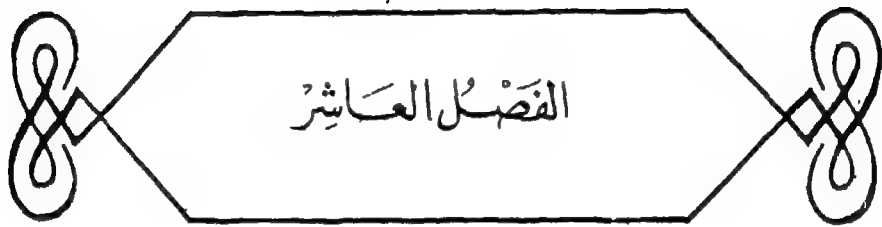 الفَصْلُ العَاشِرُ